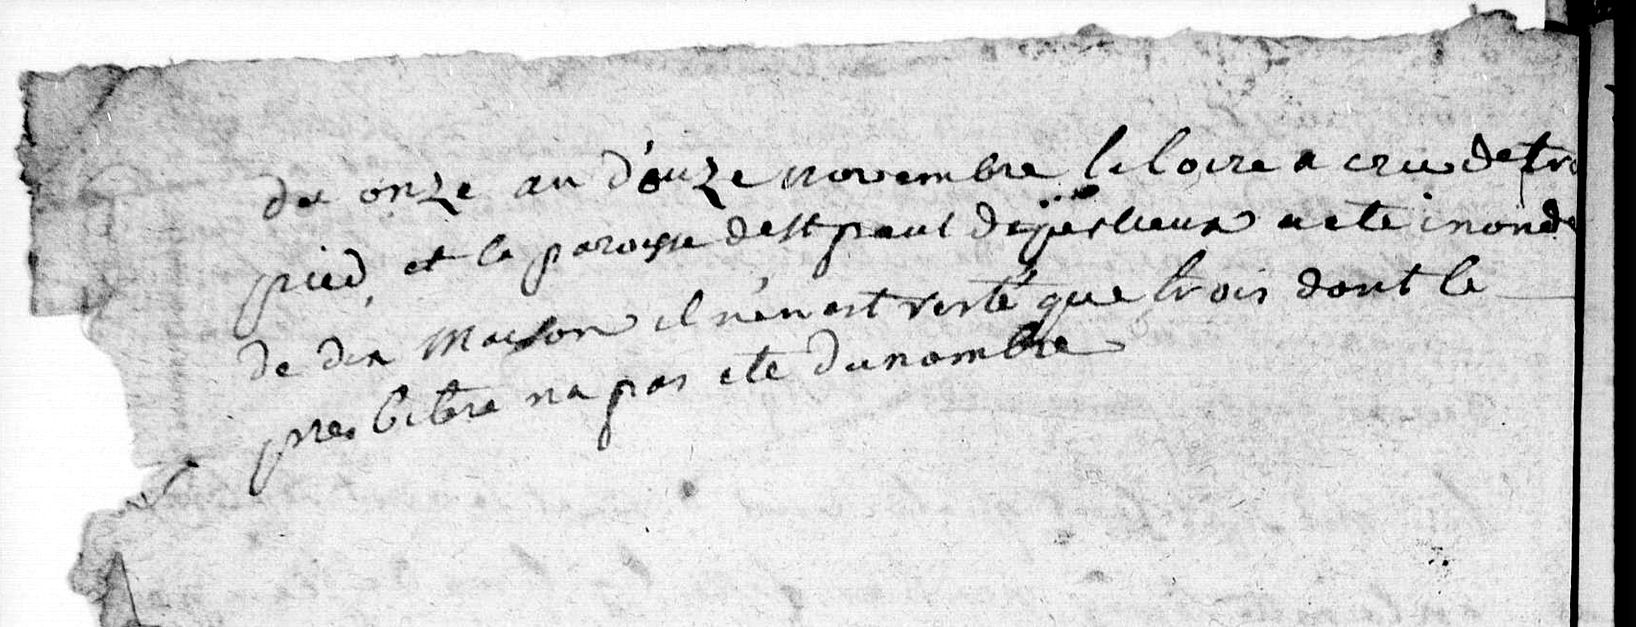 du onze au douze novembre la loire a cru de
pied et la paroysse de st paul a ete inonde
de dix maison il n'en est resté que trois dont le
presbitere na pas ete du nombre